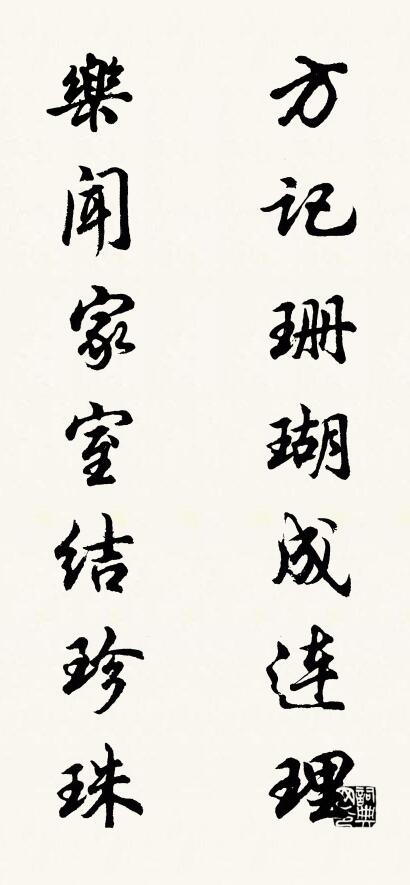 方记珊瑚成连理
樂闻家室结珍珠
詞典